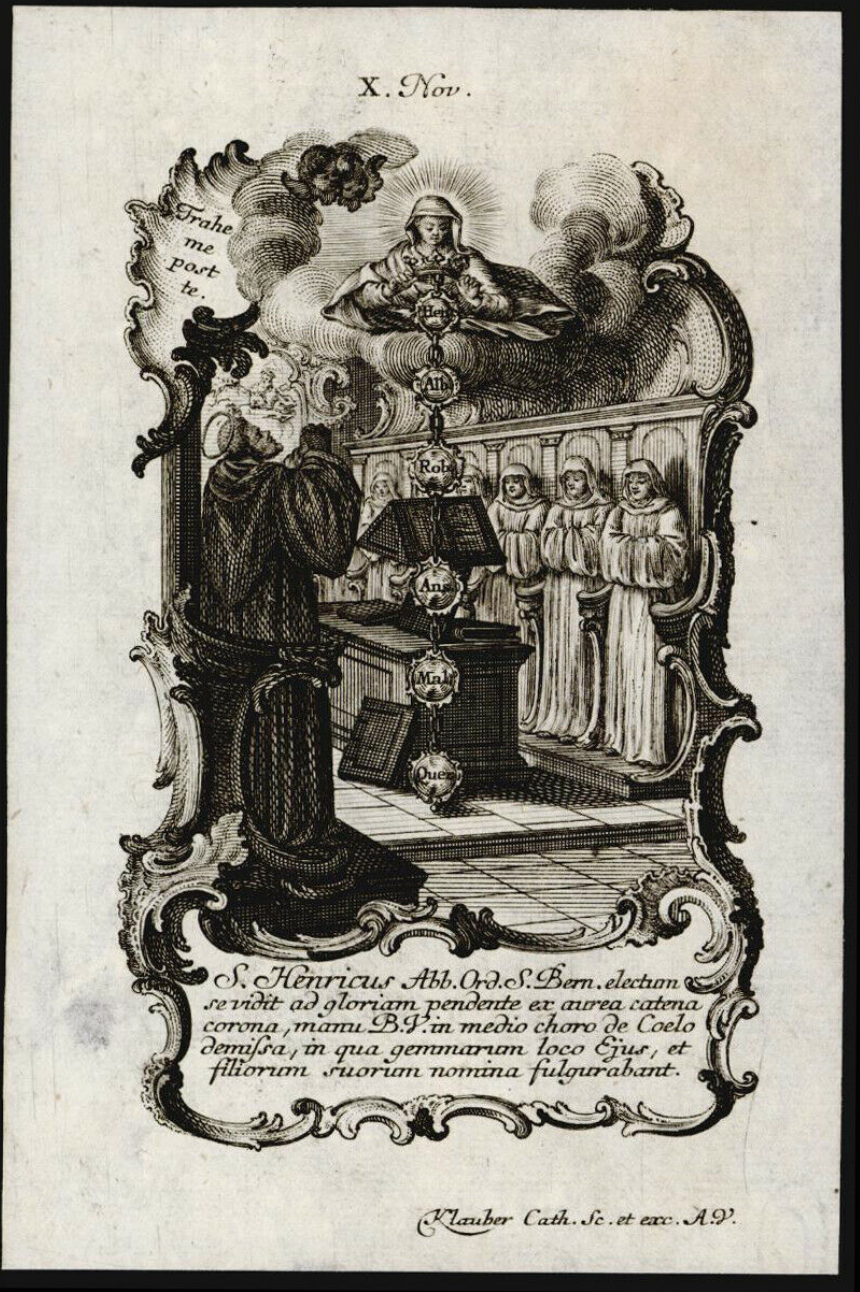 X. Nov.
Trahe
me
post
te.
Hen
Alb
Rob
Ans
Mal
Quer
S. Henricus Abb. Ord. S. Bern. electum
se vidit ad gloriam pendente ex aurea catena
corona, manu B.V. in medio choro de Coelo
demissa, in qua gemmarum loco Ejus, et
filiorum suorum nomina fulgurabant.
Klauber Cath. Sc. et exc. A.V.